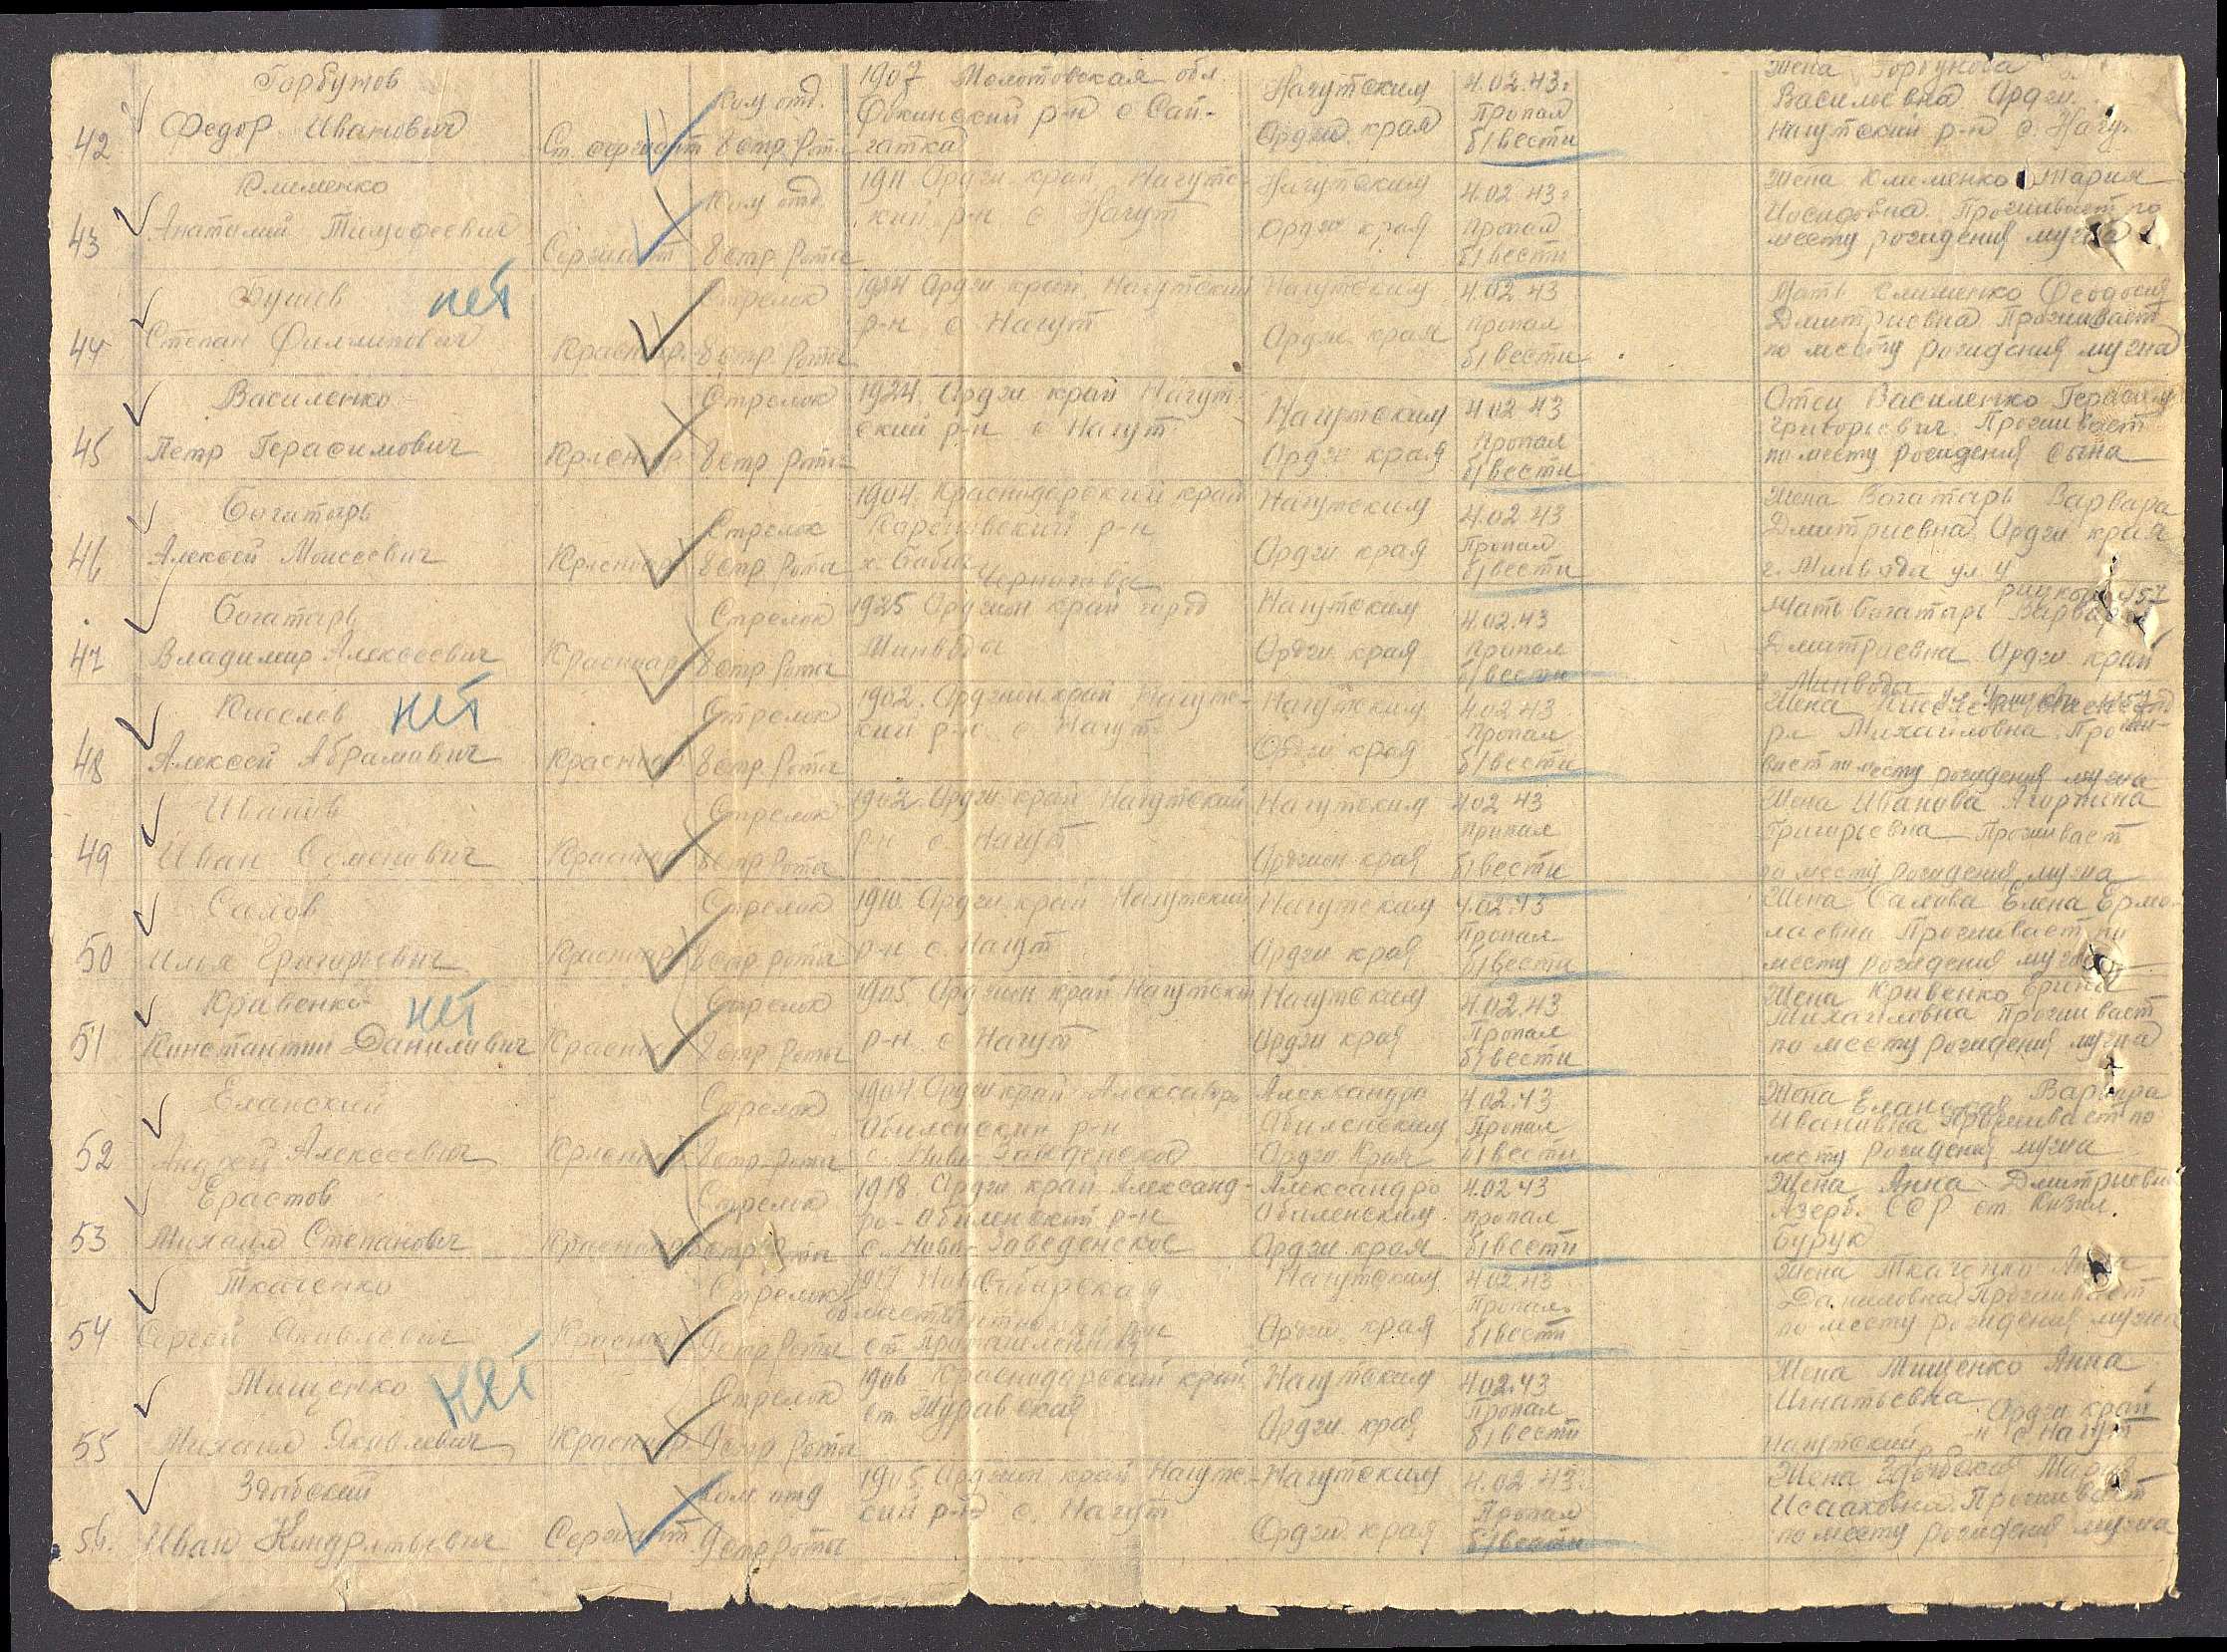 Горбунов
Федор Иванович
42
Ст. сержант
Ком. отд.
8 стр. рота
1907 Молотовская обл.
Фокинский р-н с Сай-
гатка
Нагутским
Орджи. края
4.02.43г
Пропал
б/вести
Жена Горбунова
Василевна Орджи.
Нагутский р-н с. Нагу.
Клименко
43
Анатолий Тимофеевич
Сержант
Ком отд.
8 стр. рота
1911 Орджи край Нагутс-
кий р-н с Нагут
Нагутским
Орджи края
4.02.43г
Пропал
б/вести
Жена Клименко Мария
Проживает по
месту рождения мужа
нет
44
Степан Филипович
Красноар.
Стрелок
8 стр. рота
1924 Орджи край, Нагутский
р-н с. Нагут
Нагутским
Орджи края
4.02 43
Пропал
б/вести
Мать Клименко Феодосия
Дмитриевна Проживает
по месту рождения мужа
Василенко
45
Петр Герасимович
Красноар
Стрелок
8 стр рота
1924. Орджи край Нагут-
ский р-н с Нагут
Нагутским
Орджи края
4 02 43
Пропал
б/вести
Отец Василенко Герасим
Григорьевич. Проживает
по месту рождения сына
Богатырь
46
Алексей Моисеевич
Красноар
Стрелок
8 стр рота
1904. Краснодарский край
р-н
х.
Нагутским
Орджи края
4.02 43
Пропал
б/вести
Жена Богатарь Варвара
Дмитриевна Орджи края
г. Минвода ул.
157
Богатырь
47
Владимир Алексеевич
Красноар
Стрелок
8 стр рота
1925 Орджон край город
Минводы
Нагутским
Орджи края
4.02.43
Пропал
б/вести
Мать Богатарь Варвара
Дмитриевна Орджи край
Минводы
Киселев
нет
48
Алексей Абрамович
Красноар
Стрелок
8 стр. рота
1902. Орджон. край Нагутс-
кий р-н. с Нагут
Нагутским
Орджи края
4.02 43
Пропал
б/вести
Жена
Михайловна Прожи-
вает по месту рождения мужа
Иванов
49
Иван Семенович
Красноар
Стрелок
8 стр рота
1902. Орджи край Нагутский
р-н с. Нагут
Нагутским
Орджон края
4 02 43
Пропал
б/вести
Жена Иванова
Григорьевна Проживает
по месту рождения мужа
Салов
50
Илья Григорьевич
Красноар
Стрелок
8 стр рота
1910. Орджи край Нагутский
р-н с. Нагут
Нагутским
Орджи края
4.02.43
Пропал
б/вести
Жена Салова Елена Ермо-
лаевна Проживает по
месту рождения мужа
Кривенко
нет
51
Константин Данилович
Стрелок
8 стр. рота
1905 Орджон край
р-н с Нагут
Нагутским
Орджи края
4.02.43
Пропал
б/вести
Жена Кривенко
Михайловна Проживает
по месту рождения мужа
Еланский
52
Андрей Алексеевич
Красноар
Стрелок
8 стр. рота
1904 Орджи край Александро
Обиленский р-н
с. Ново-Заведенское
Александро
Обиленским
Орджи Края
4.02.43
Пропал
б/вести
Жена Варвара
Ивановна Проживает по
месту рождения мужа
Ерастов
53
Михаил Степанович
Красноар
Стрелок
8 стр. рота
1918. Орджи край Александ-
ро-Обиленский р-н
с. Ново-Заведенское
Александро
Обиленским.
Орджи. края
4.02 43
пропал
б/вести
Жена Анна Дмитриевна
Азерб. ССР ст.
Бурук
Ткаченко
54
Сергей Яковлевич
Красноар
Стрелок
9 стр рота
Новосибирская
область
ст
Нагутским
Орджи. края
4.02.43
Пропал
б/вести
Жена Ткаченко
Даниловна Проживает
по месту рождения мужа
Мищенко
нет
55
Михаил Яковлевич
Красноар
Стрелок
9 стр. рота
1906 Краснодарский край
ст. Журавская
Нагутским
Орджи. края
4 02.43
Пропал
б/вести
Жена Мищенко Анна
Игнатьевна. Орджи край
Нагутский -н с Нагут
56.
Иван Кондратьевич
Сержант.
Ком отд
9 стр. рота
1905. Орджон. край Нагутс-
кий р-н с. Нагут
Нагутским
Орджи. края
4.02 43г.
Пропал
б/вести
Жена Мария
Исааковна. Проживает
по месту рождения мужа